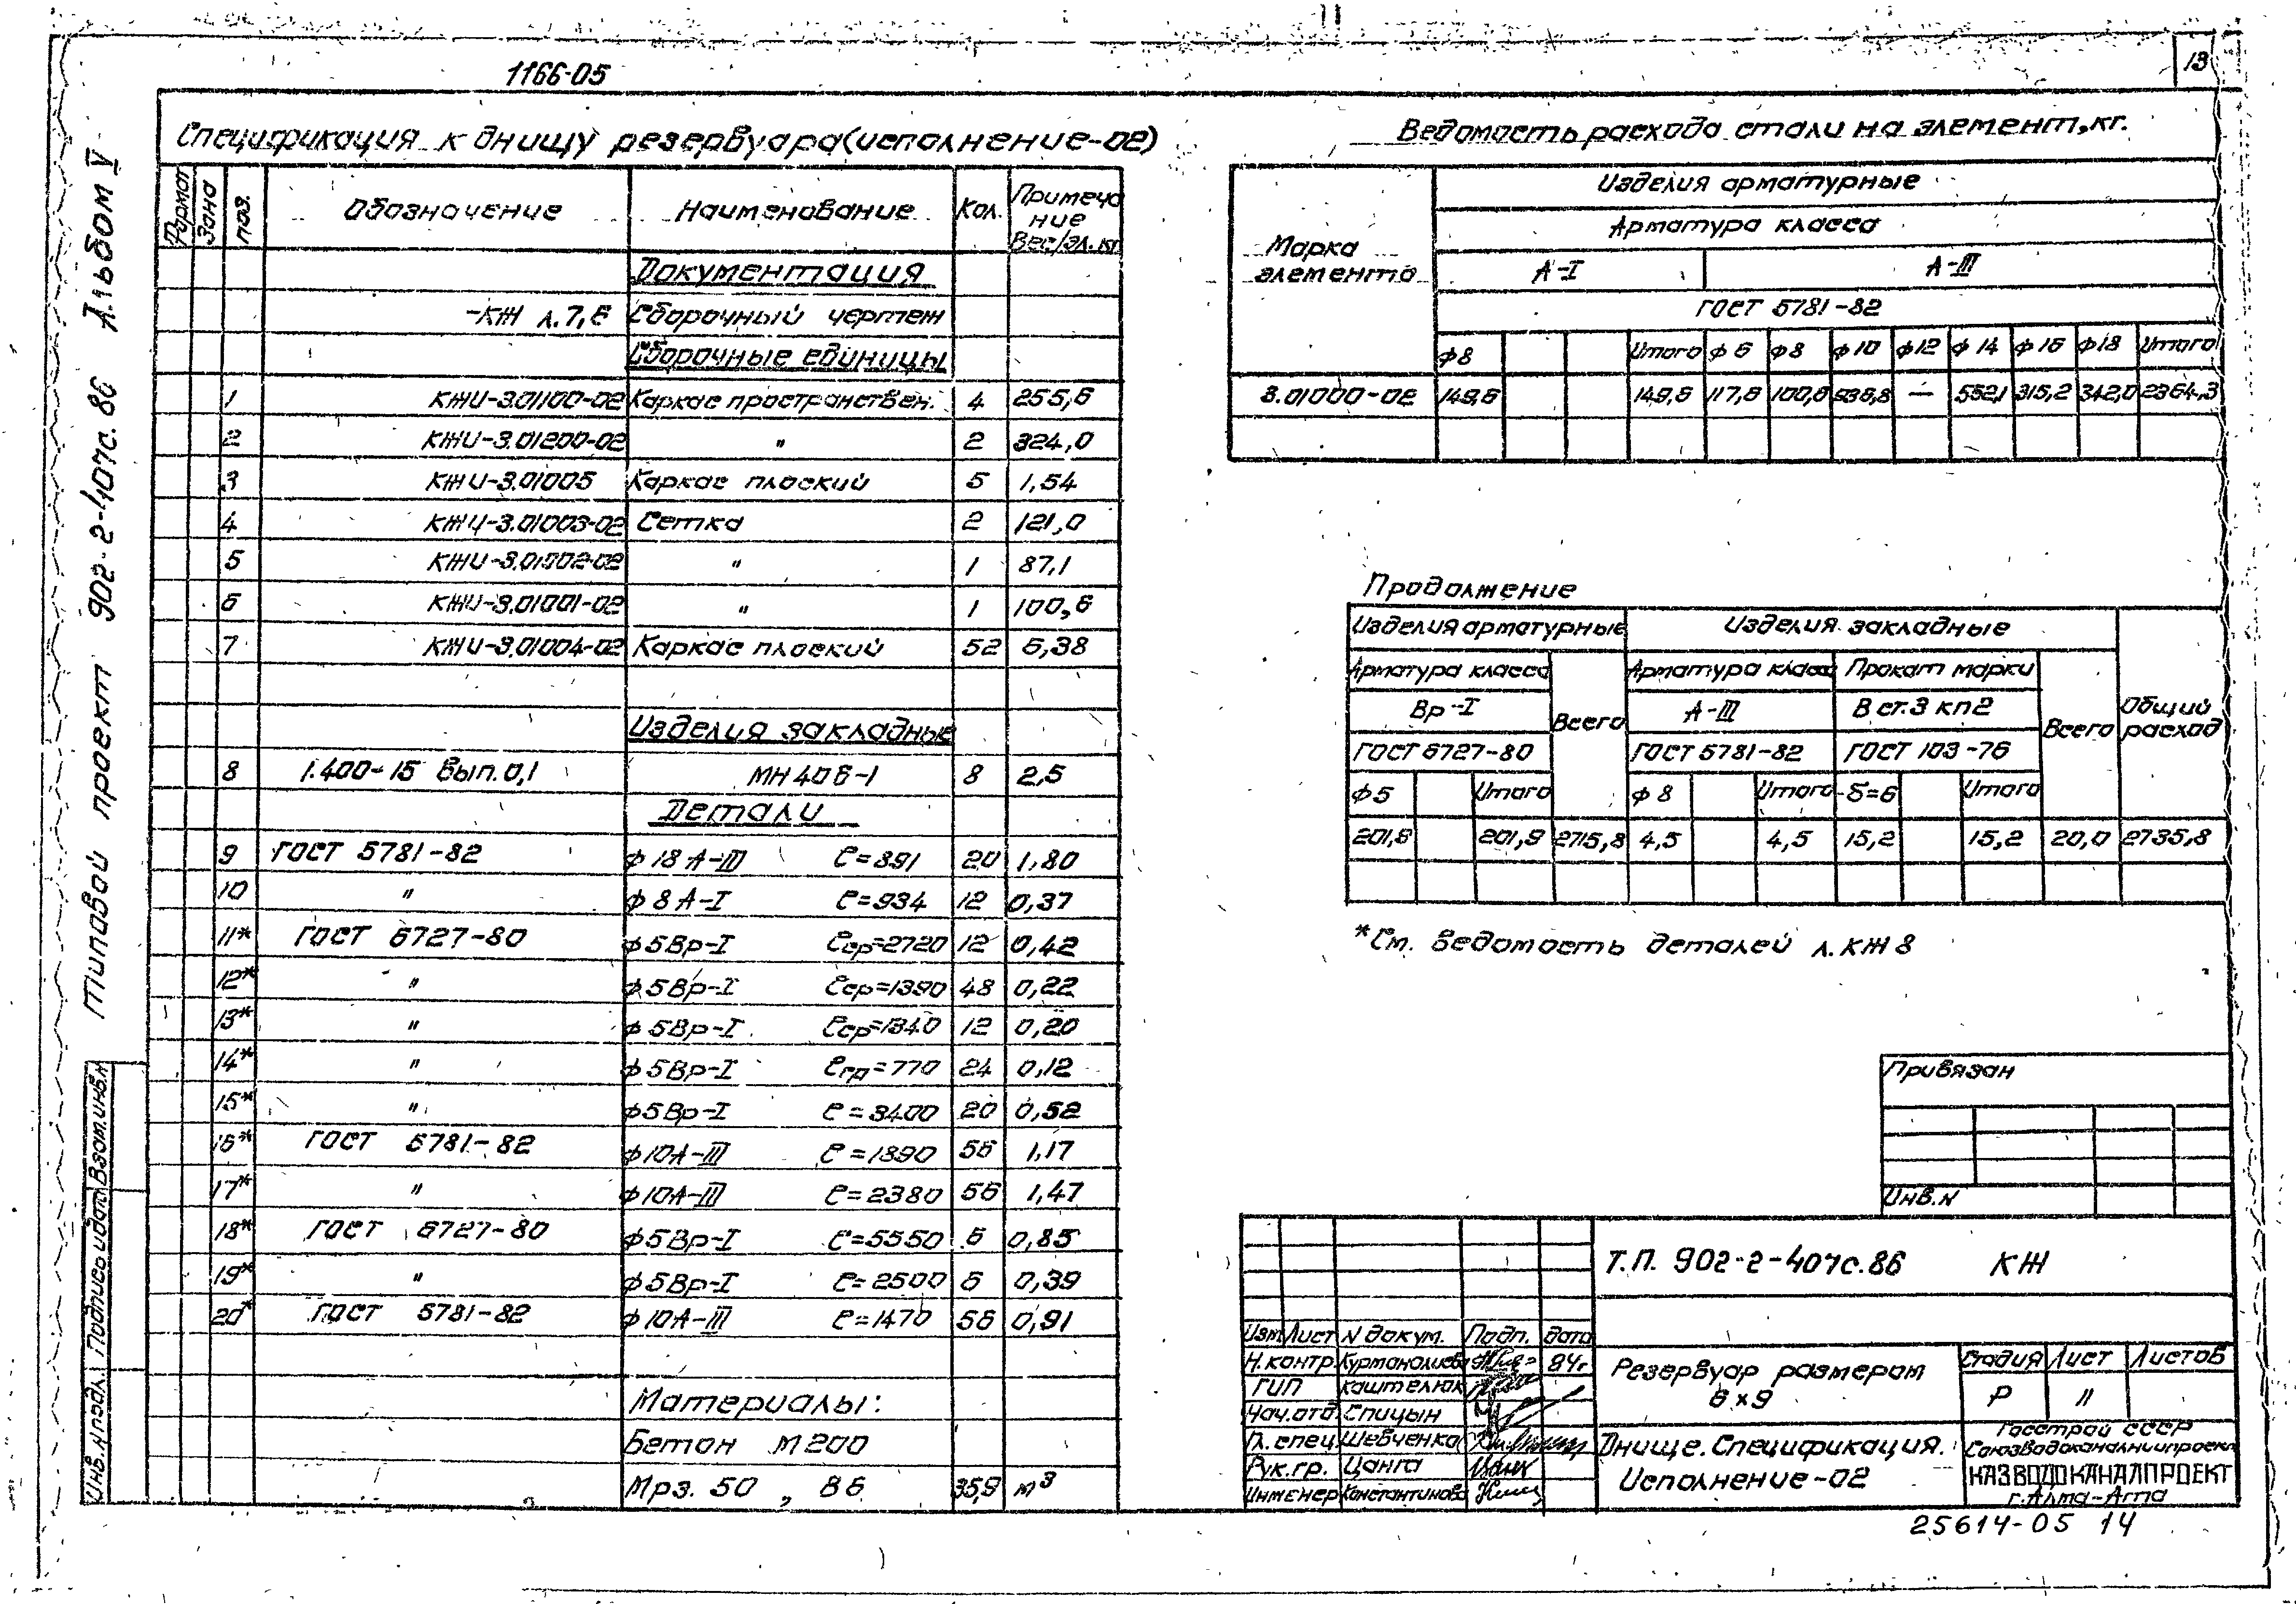 1166-05
13
Типовой проект 902-2-407с.86 Альбом V
Спецификация к днищу резервуара (исполнение-02)
Формат Зона поз. Обозначение Наименование Кол. Примечание Вес/эл. кг
Документация
-КЖ л.7,8 Сборочный чертеж
Сборочные единицы
1 КЖИ-3.01100-02 Каркас пространствен. 4 255,6
2 КЖИ-3.01200-02 " 2 324,0
3 КЖИ-3.01005 Каркас плоский 5 1,54
4 КЖИ-3.01003-02 Сетка 2 121,0
5 КЖИ-3.01002-02 " 1 87,1
6 КЖИ-3.01001-02 " 1 100,6
7 КЖИ-3.01004-02 Каркас плоский 52 6,38
Изделия закладные
8 1.400-15 вып. 0,1 МН 406-1 8 2,5
Детали
9 ГОСТ 5781-82 ф18 А-III ℓ=891 20 1,80
10 " ф8 А-I ℓ=934 12 0,37
11* ГОСТ 6727-80 ф5Вр-I ℓср=2720 12 0,42
12* " ф5Вр-I ℓср=1390 48 0,22
13* " ф5Вр-I ℓср=1340 12 0,20
14* " ф5Вр-I ℓср=770 24 0,12
15* " ф5Вр-I ℓ=3400 20 0,52
16* ГОСТ 5781-82 ф10А-III ℓ=1890 56 1,17
17* " ф10А-III ℓ=2380 56 1,47
18* ГОСТ 6727-80 ф5Вр-I ℓ=5550 6 0,85
19* " ф5Вр-I ℓ=2500 6 0,39
20* ГОСТ 5781-82 ф10А-III ℓ=1470 56 0,91
Материалы:
Бетон М200
Мрз. 50, В6 35,9 м³
Ведомость расхода стали на элемент, кг.
Марка элемента
Изделия арматурные
Арматура класса
А-I А-III
ГОСТ 5781-82
ф8 Итого ф6 ф8 ф10 ф12 ф14 ф16 ф18 Итого
3.01000-02 149,6 149,6 117,6 100,6 936,8 — 552,1 315,2 342,0 2364,3
Продолжение
Изделия арматурные Изделия закладные
Арматура класса Всего Арматура класса Прокат марки Всего Общий расход
Вр-I А-III Вст.3 кп2
ГОСТ 6727-80 ГОСТ 5781-82 ГОСТ 103-76
ф5 Итого ф8 Итого δ=6 Итого
201,9 201,9 2715,8 4,5 4,5 15,2 15,2 20,0 2735,8
*См. ведомость деталей л. КЖ 8
Привязан
Инв. N
Т.П. 902-2-407с.86 КЖ
Изм Лист N докум. Подп. дата
Н.контр. Курманалиева 84г
ГИП Каштелюк
Нач.отд. Спицын
Гл. спец. Шевченко
Рук.гр. Цанга
Инженер Константинова
Резервуар размером
6×9
Стадия Лист Листов
Р 11
Днище. Спецификация.
Исполнение-02
Госстрой СССР
Союзводоканалниипроект
КАЗВОДОКАНАЛПРОЕКТ
г. Алма-Ата
25614-05 14
Взам.инв.N
Подпись и дата
Инв. N подл.